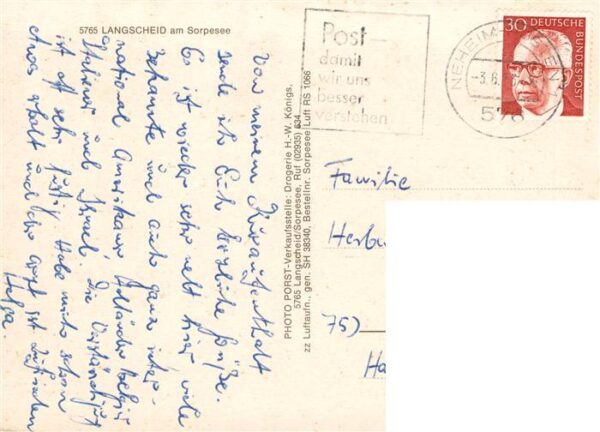 5765 LANGSCHEID am Sorpesee
Von meinem Kuraufenthalt
sende ich Euch herzliche Grüße.
Es ist wieder sehr nett hier, viele
Bekannte und auch ganz inter-
national Amerikaner Holländer Belgier
Italiener und Israel. Die Verständigung
ist oft sehr lustig. Habe mich schon
etwas erholt und der Arzt ist zufrieden
Helga.
PHOTO PORST-Verkaufsstelle: Drogerie H.-W. Königs,
5765 Langscheid/Sorpesee, Ruf (02935) 834
zz Luftaufn., gen. SH 38340, Bestellnr. Sorpesee Luft RS 1066
Post
damit
wir uns
besser
verstehen
NEHEIM
-3.6.
576
30 DEUTSCHE
BUNDESPOST
Familie
Herbe
75)
Ha